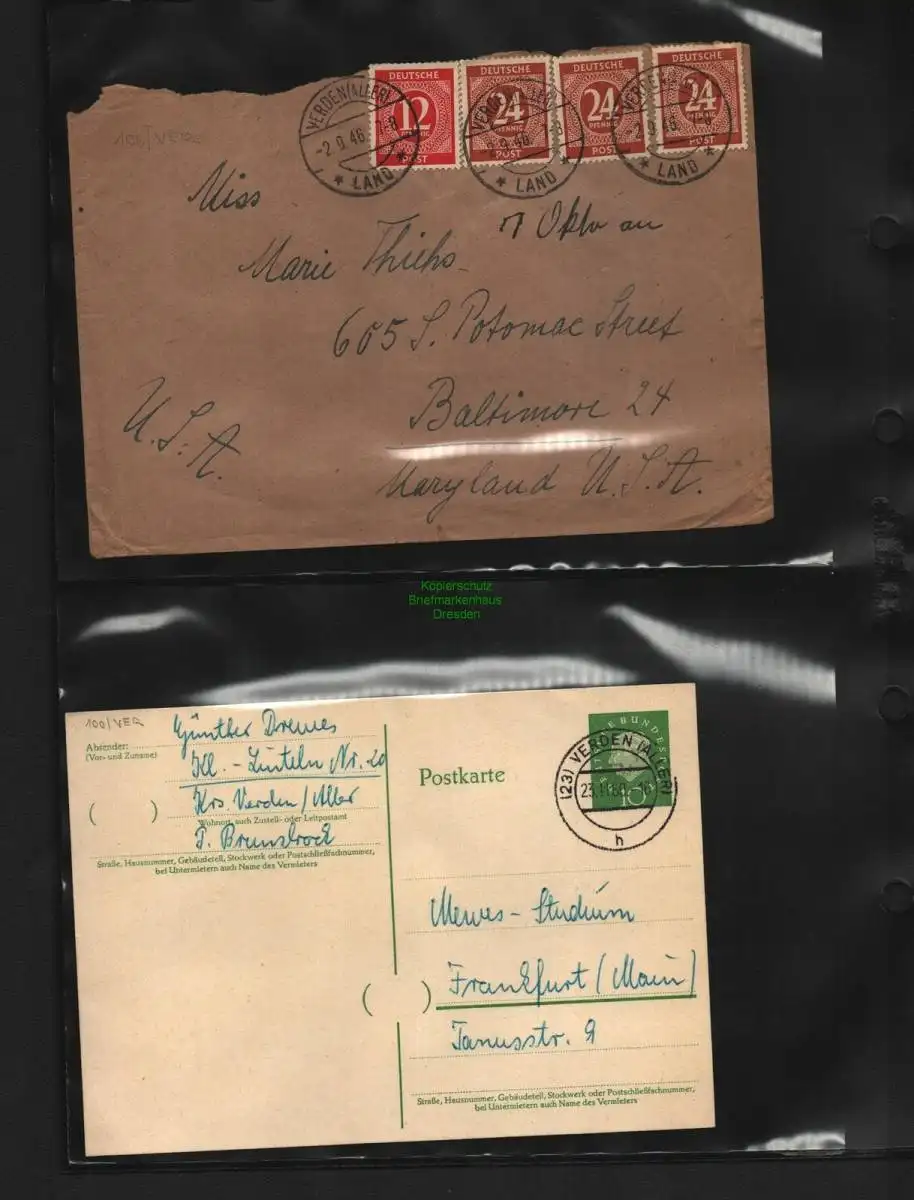 DEUTSCHE DEUTSCHE DEUTSCHE DEUTSCHE
12 24 24 24
PFENNIG PFENNIG PFENNIG
POST POST POST POST
VERDEN (ALLER)
-2.9.46
* LAND *
100/VER
Miss
7 Okto an
Marie Thiehs
605 S. Potomac Street
Baltimore 24
U.S.A.
Maryland U.S.A.
Kopierschutz
Briefmarkenhaus
Dresden
100/VER
Absender:
(Vor- und Zuname)
Günther Drewes
Kl.-Linteln Nr. 20
Krs. Verden/Aller
Wohnort, auch Zustell- oder Leitpostamt
Straße, Hausnummer, Gebäudeteil, Stockwerk oder Postschließfachnummer,
bei Untermietern auch Name des Vermieters
Postkarte
10
(23) VERDEN (ALLER)
h
Mewes-Studium
( ) Frankfurt (Main)
Taunusstr. 9
Straße, Hausnummer, Gebäudeteil, Stockwerk oder Postschließfachnummer,
bei Untermietern auch Name des Vermieters